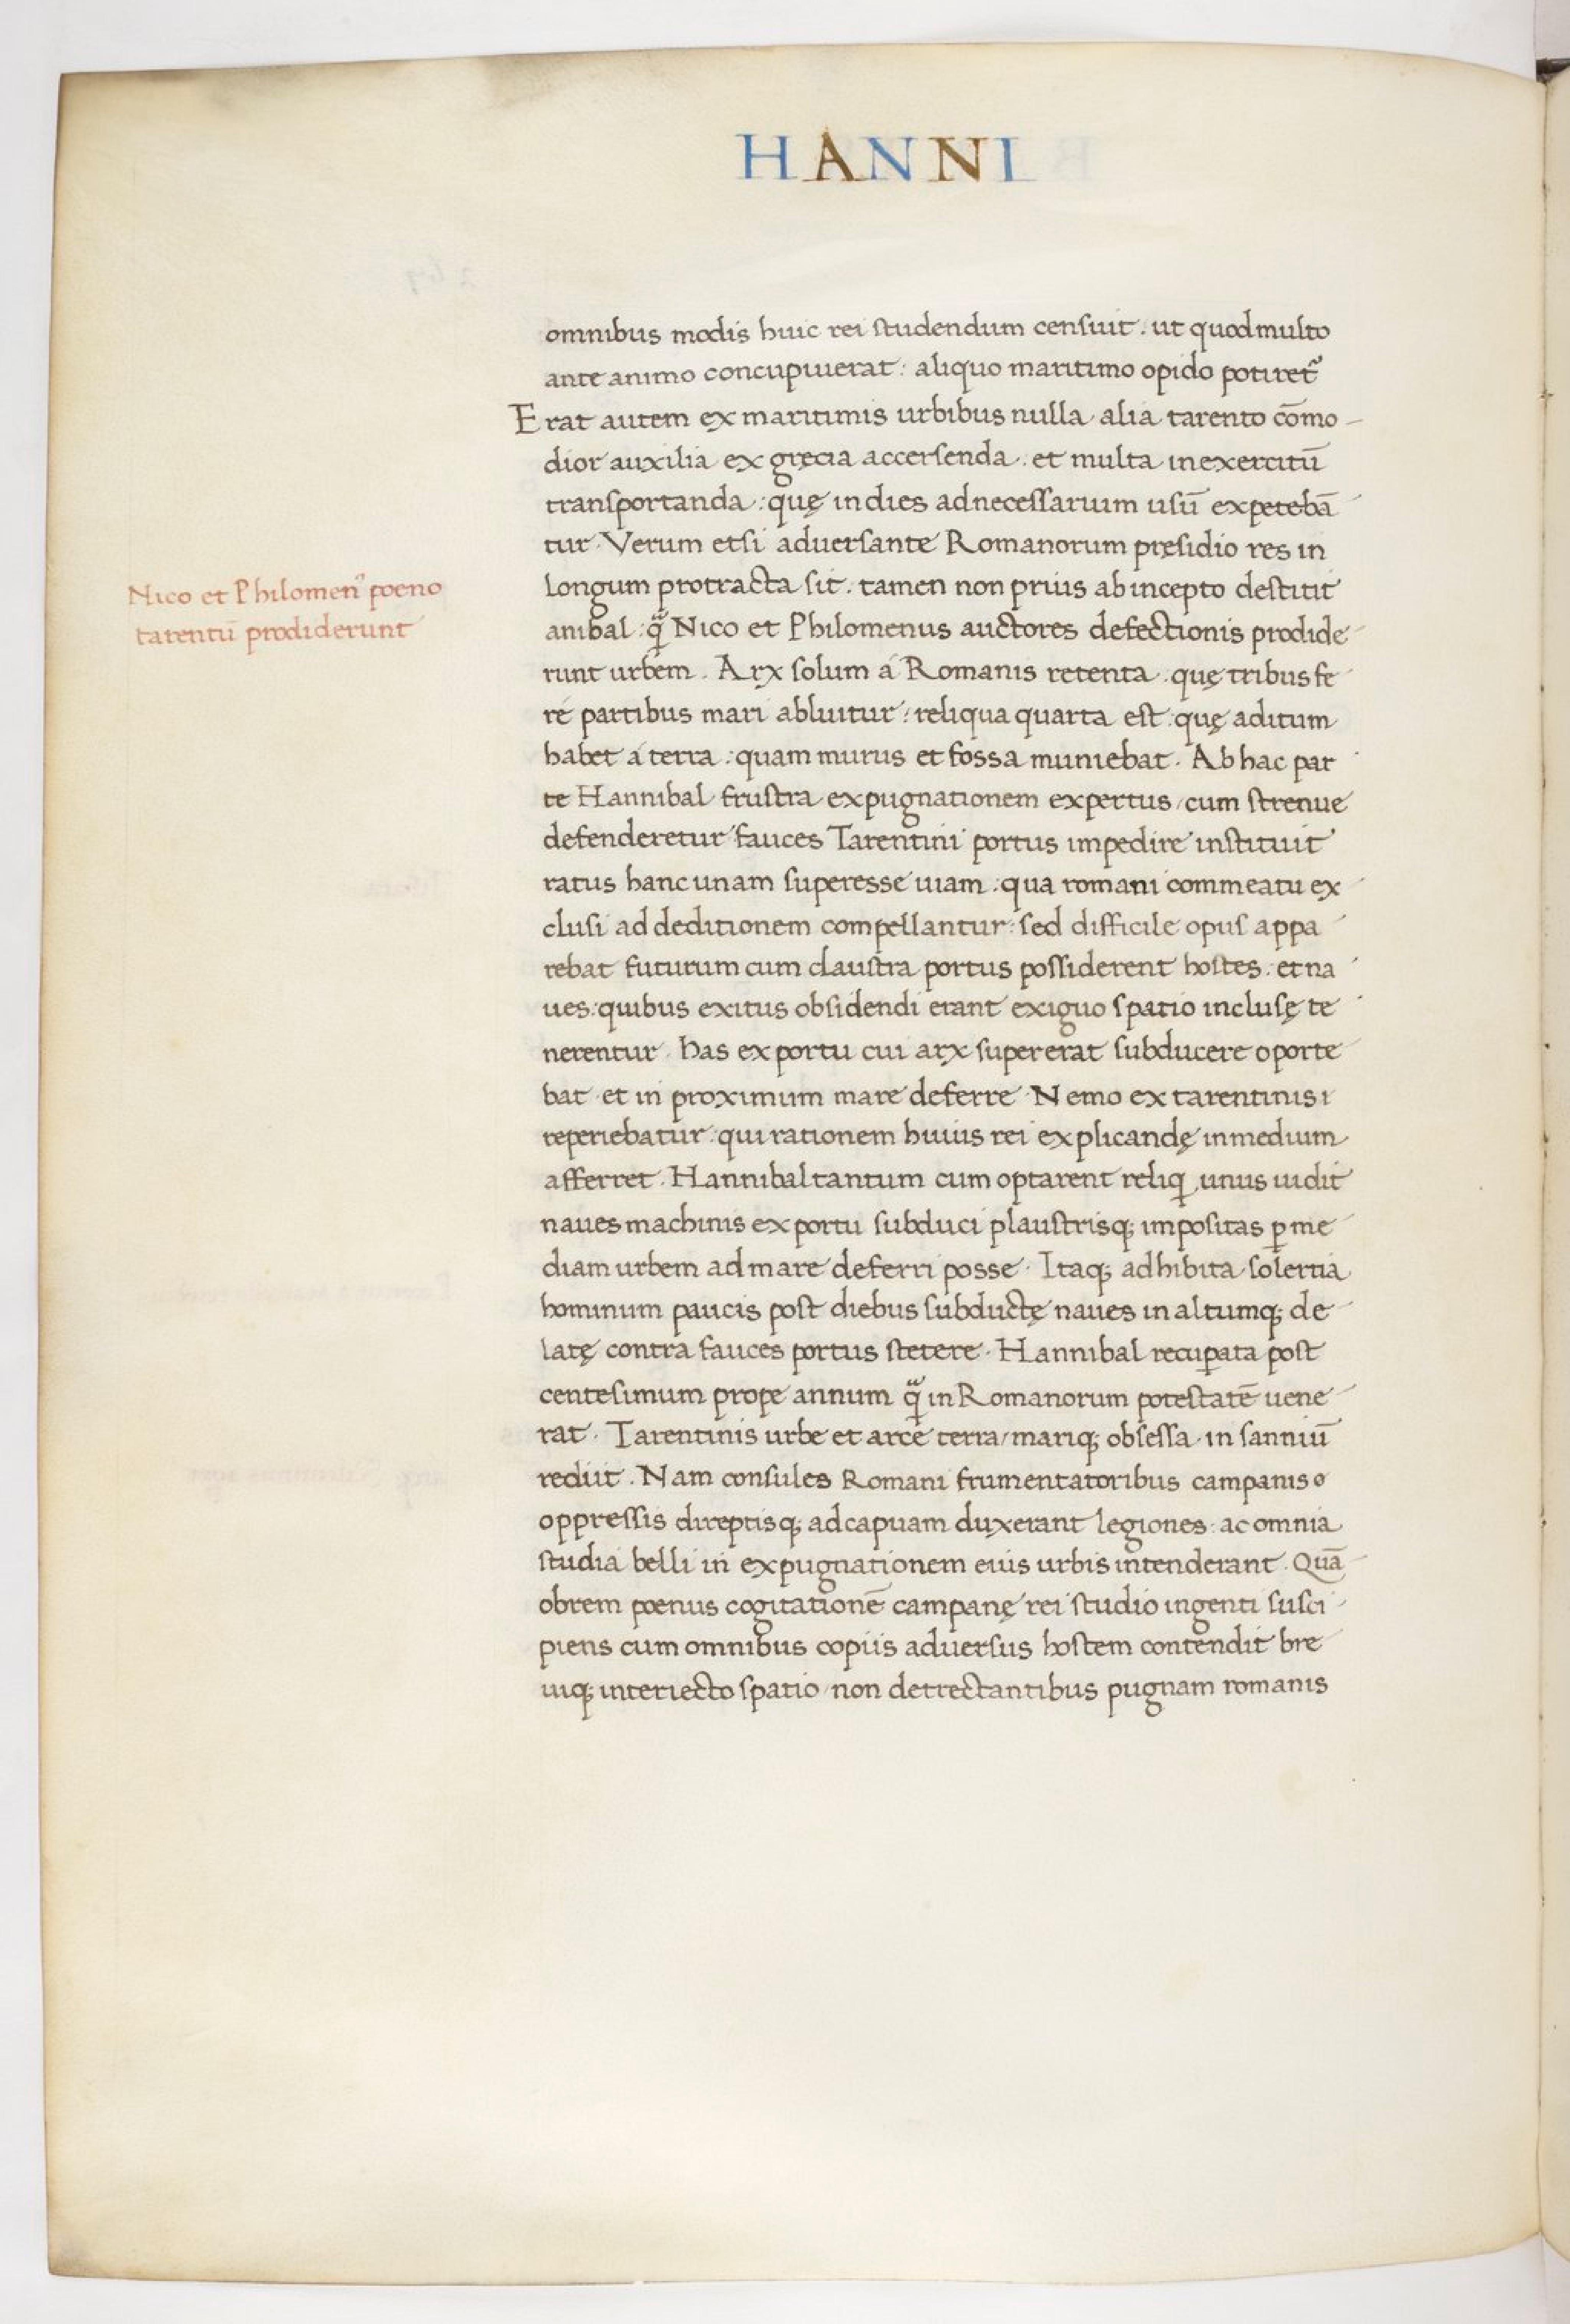 HANNI
omnibus modis huic rei studendum censuit. ut quod multo
ante animo concupiuerat: aliquo maritimo opido potiret᷑
Erat autem ex maritimis urbibus nulla alia tarento cōmo-
dior auxilia ex gręcia accersenda: et multa in exercitū
transportanda: quę in dies ad necessarium usū expetebā-
tur. Verum etsi aduersante Romanorum pręsidio res in
longum protracta sit. tamen non prius ab incepto destitit
Nico et Philomen᾿ poeno
tarentū prodiderunt
anibal: qͣ Nico et Philomenus auctores defectionis prodide-
runt urbem. Arx solum á Romanis retenta: quę tribus fe-
re partibus mari abluitur: reliqua quarta est: quę aditum
habet á terra: quam murus et fossa muniebat. Ab hac par-
te Hannibal frustra expugnationem expertus, cum strenue
defenderetur fauces Tarentini portus impedire instituit
ratus hanc unam superesse uiam: qua romani commeatu ex-
clusi ad deditionem compellantur: sed difficile opus appa-
rebat futurum cum claustra portus possiderent hostes: et na-
ues: quibus exitus obsidendi erant exiguo spatio inclusę te-
nerentur. has ex portu cui arx supererat subducere oporte-
bat et in proximum mare deferre. Nemo ex tarentinis r
reperiebatur: qui rationem huius rei explicandę in medium
afferret. Hannibal tantum cum optarent reliqi unus uidit
naues machinis ex portu subduci plaustrisq; impositas p̲ me-
diam urbem ad mare deferri posse. Itaq; adhibita solertia
hominum paucis post diebus subductę naues in altumq; de-
latę contra fauces portus stetere. Hannibal recup̲ata post
centesimum prope annum qͣ in Romanorum potestatē uene-
rat. Tarentinis urbe et arce terra/mariq; obsessa in sanniū
rediit. Nam consules Romani frumentatoribus campanis o
oppressis direptisq; ad capuam duxerant legiones: ac omnia
studia belli in expugnationem eius urbis intenderant. Quā-
obrem poenus cogitationē campanę rei studio ingenti susci-
piens cum omnibus copiis aduersus hostem contendit bre-
uiq; interiecto spatio non detrectantibus pugnam romanis